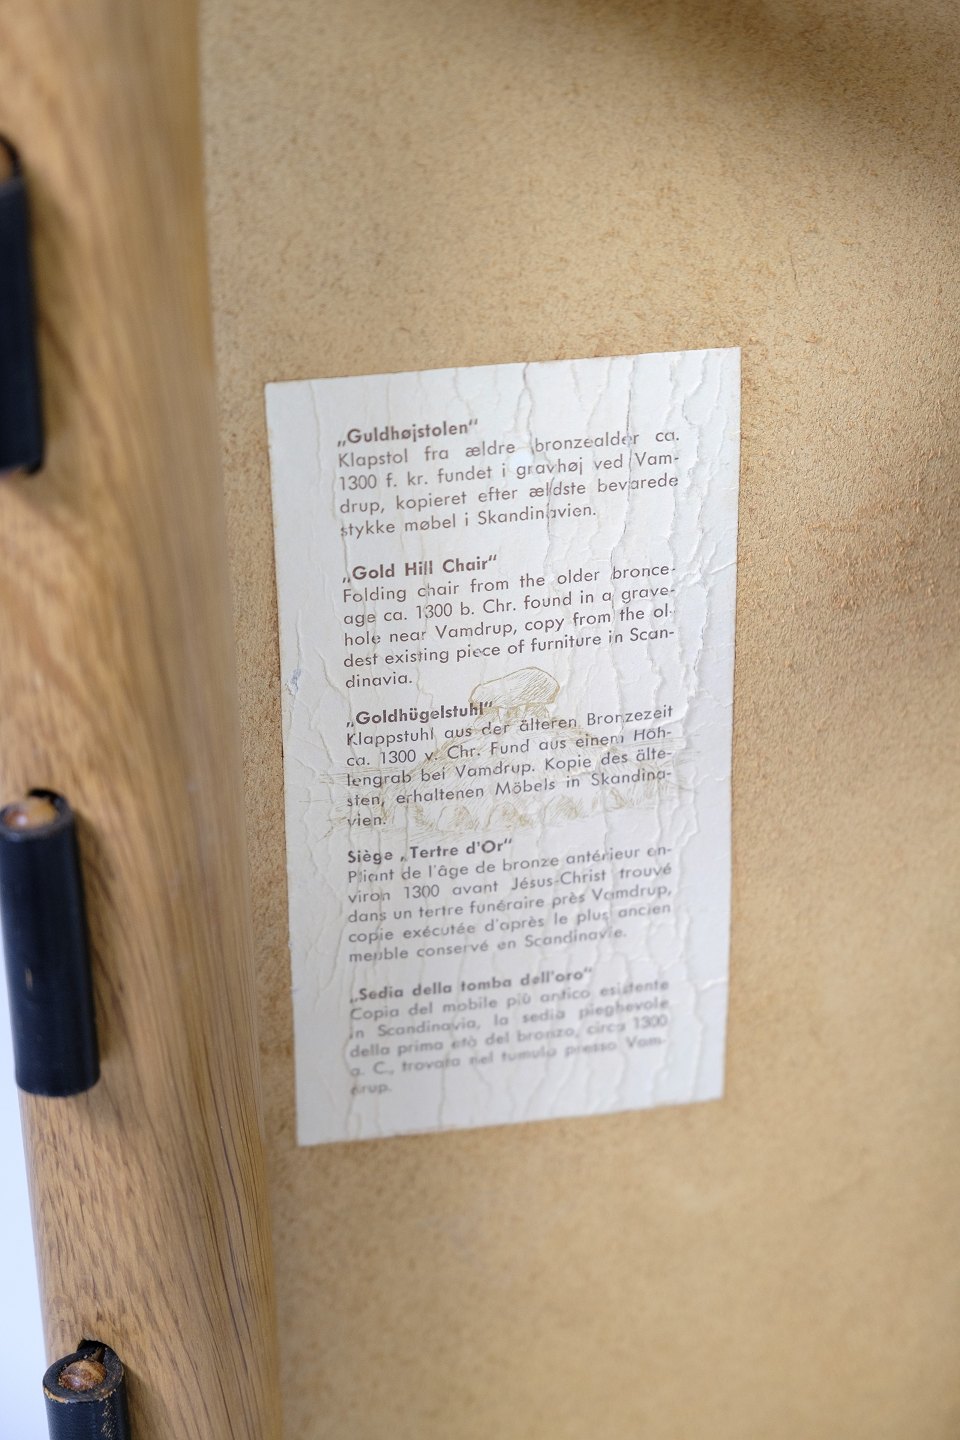 „Guldhøjstolen“
Klapstol fra ældre bronzealder ca.
1300 f. kr. fundet i gravhøj ved Vam-
drup, kopieret efter ældste bevarede
stykke møbel i Skandinavien.
„Gold Hill Chair“
Folding chair from the older bronce-
age ca. 1300 b. Chr. found in a grave-
hole near Vamdrup, copy from the ol-
dest existing piece of furniture in Scan-
dinavia.
„Goldhügelstuhl“
Klappstuhl aus der älteren Bronzezeit
ca. 1300 v. Chr. Fund aus einem Höh-
lengrab bei Vamdrup. Kopie des älte-
sten, erhaltenen Möbels in Skandina-
vien.
Siège „Tertre d'Or“
Pliant de l'âge de bronze antérieur en-
viron 1300 avant Jésus-Christ trouvé
dans un tertre funéraire près Vamdrup,
copie exécutée d'après le plus ancien
meuble conservé en Scandinavie.
„Sedia della tomba dell'oro“
Copia del mobile più antico esistente
in Scandinavia, la sedia pieghevole
della prima età del bronzo, circa 1300
a. C., trovata nel tumulo presso Vam-
drup.